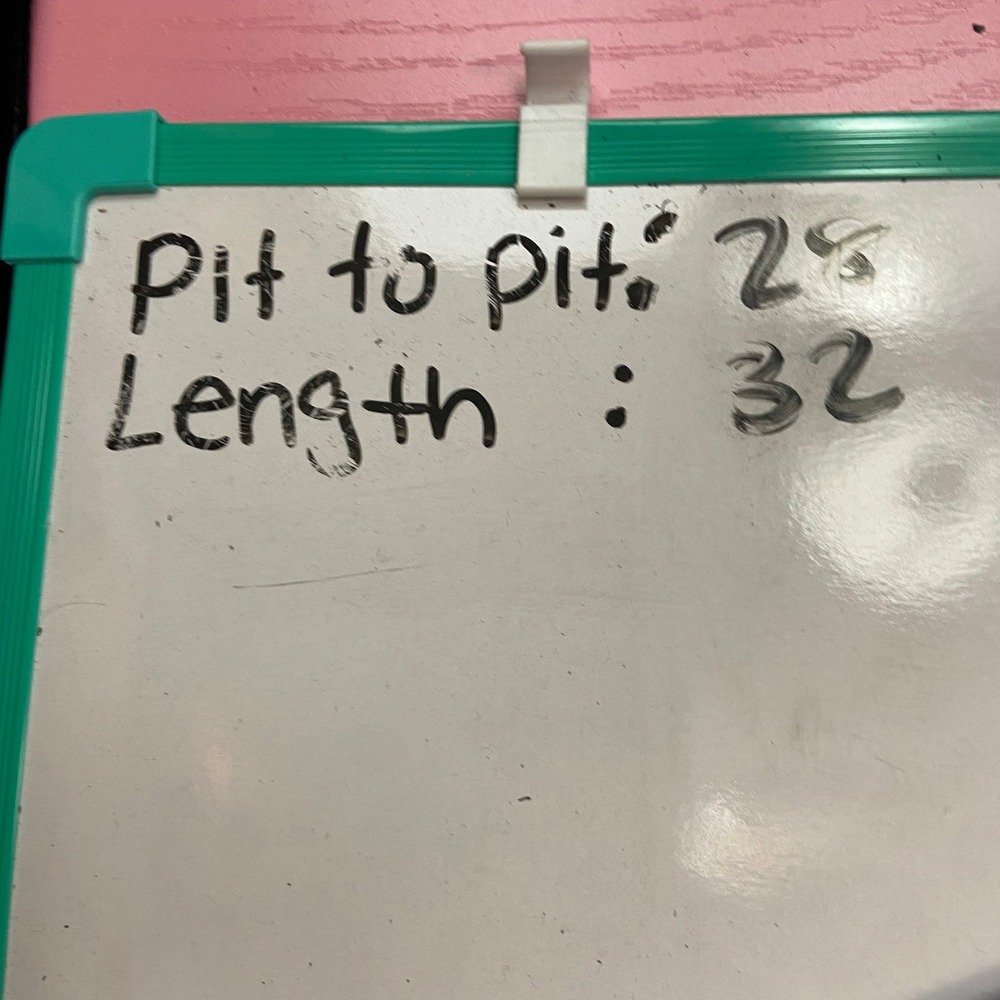 Pit to pit: 28
Length : 32